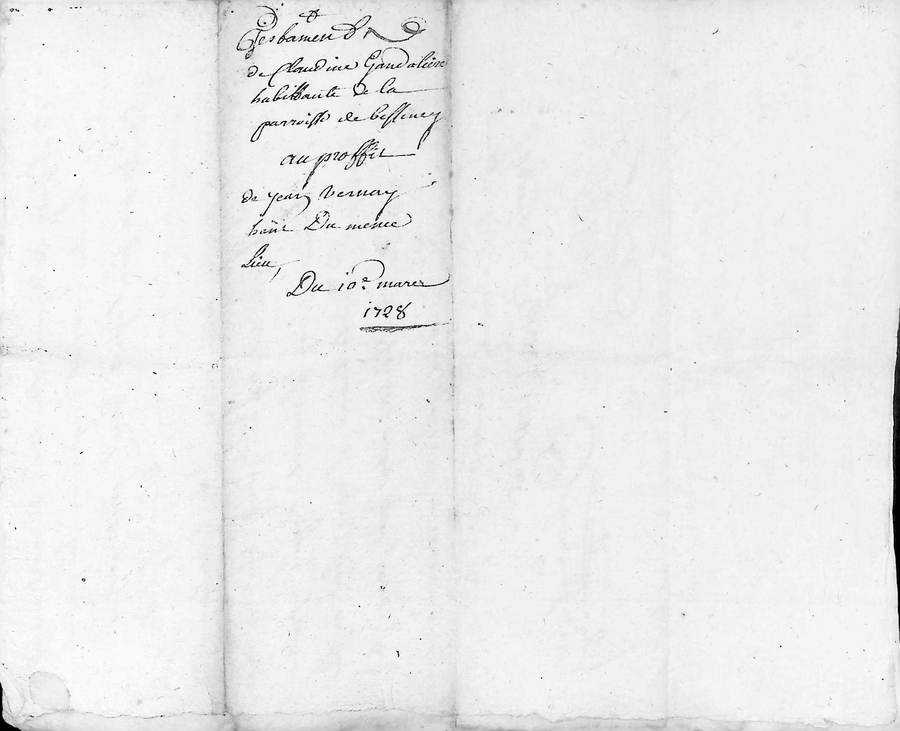 Testament
de Claudine Gandalière
habittante de la
parroisse de bessenay
au proffit
de jean Vernay
hañt Du meme
Lieu,
Du 10e. mars
1728